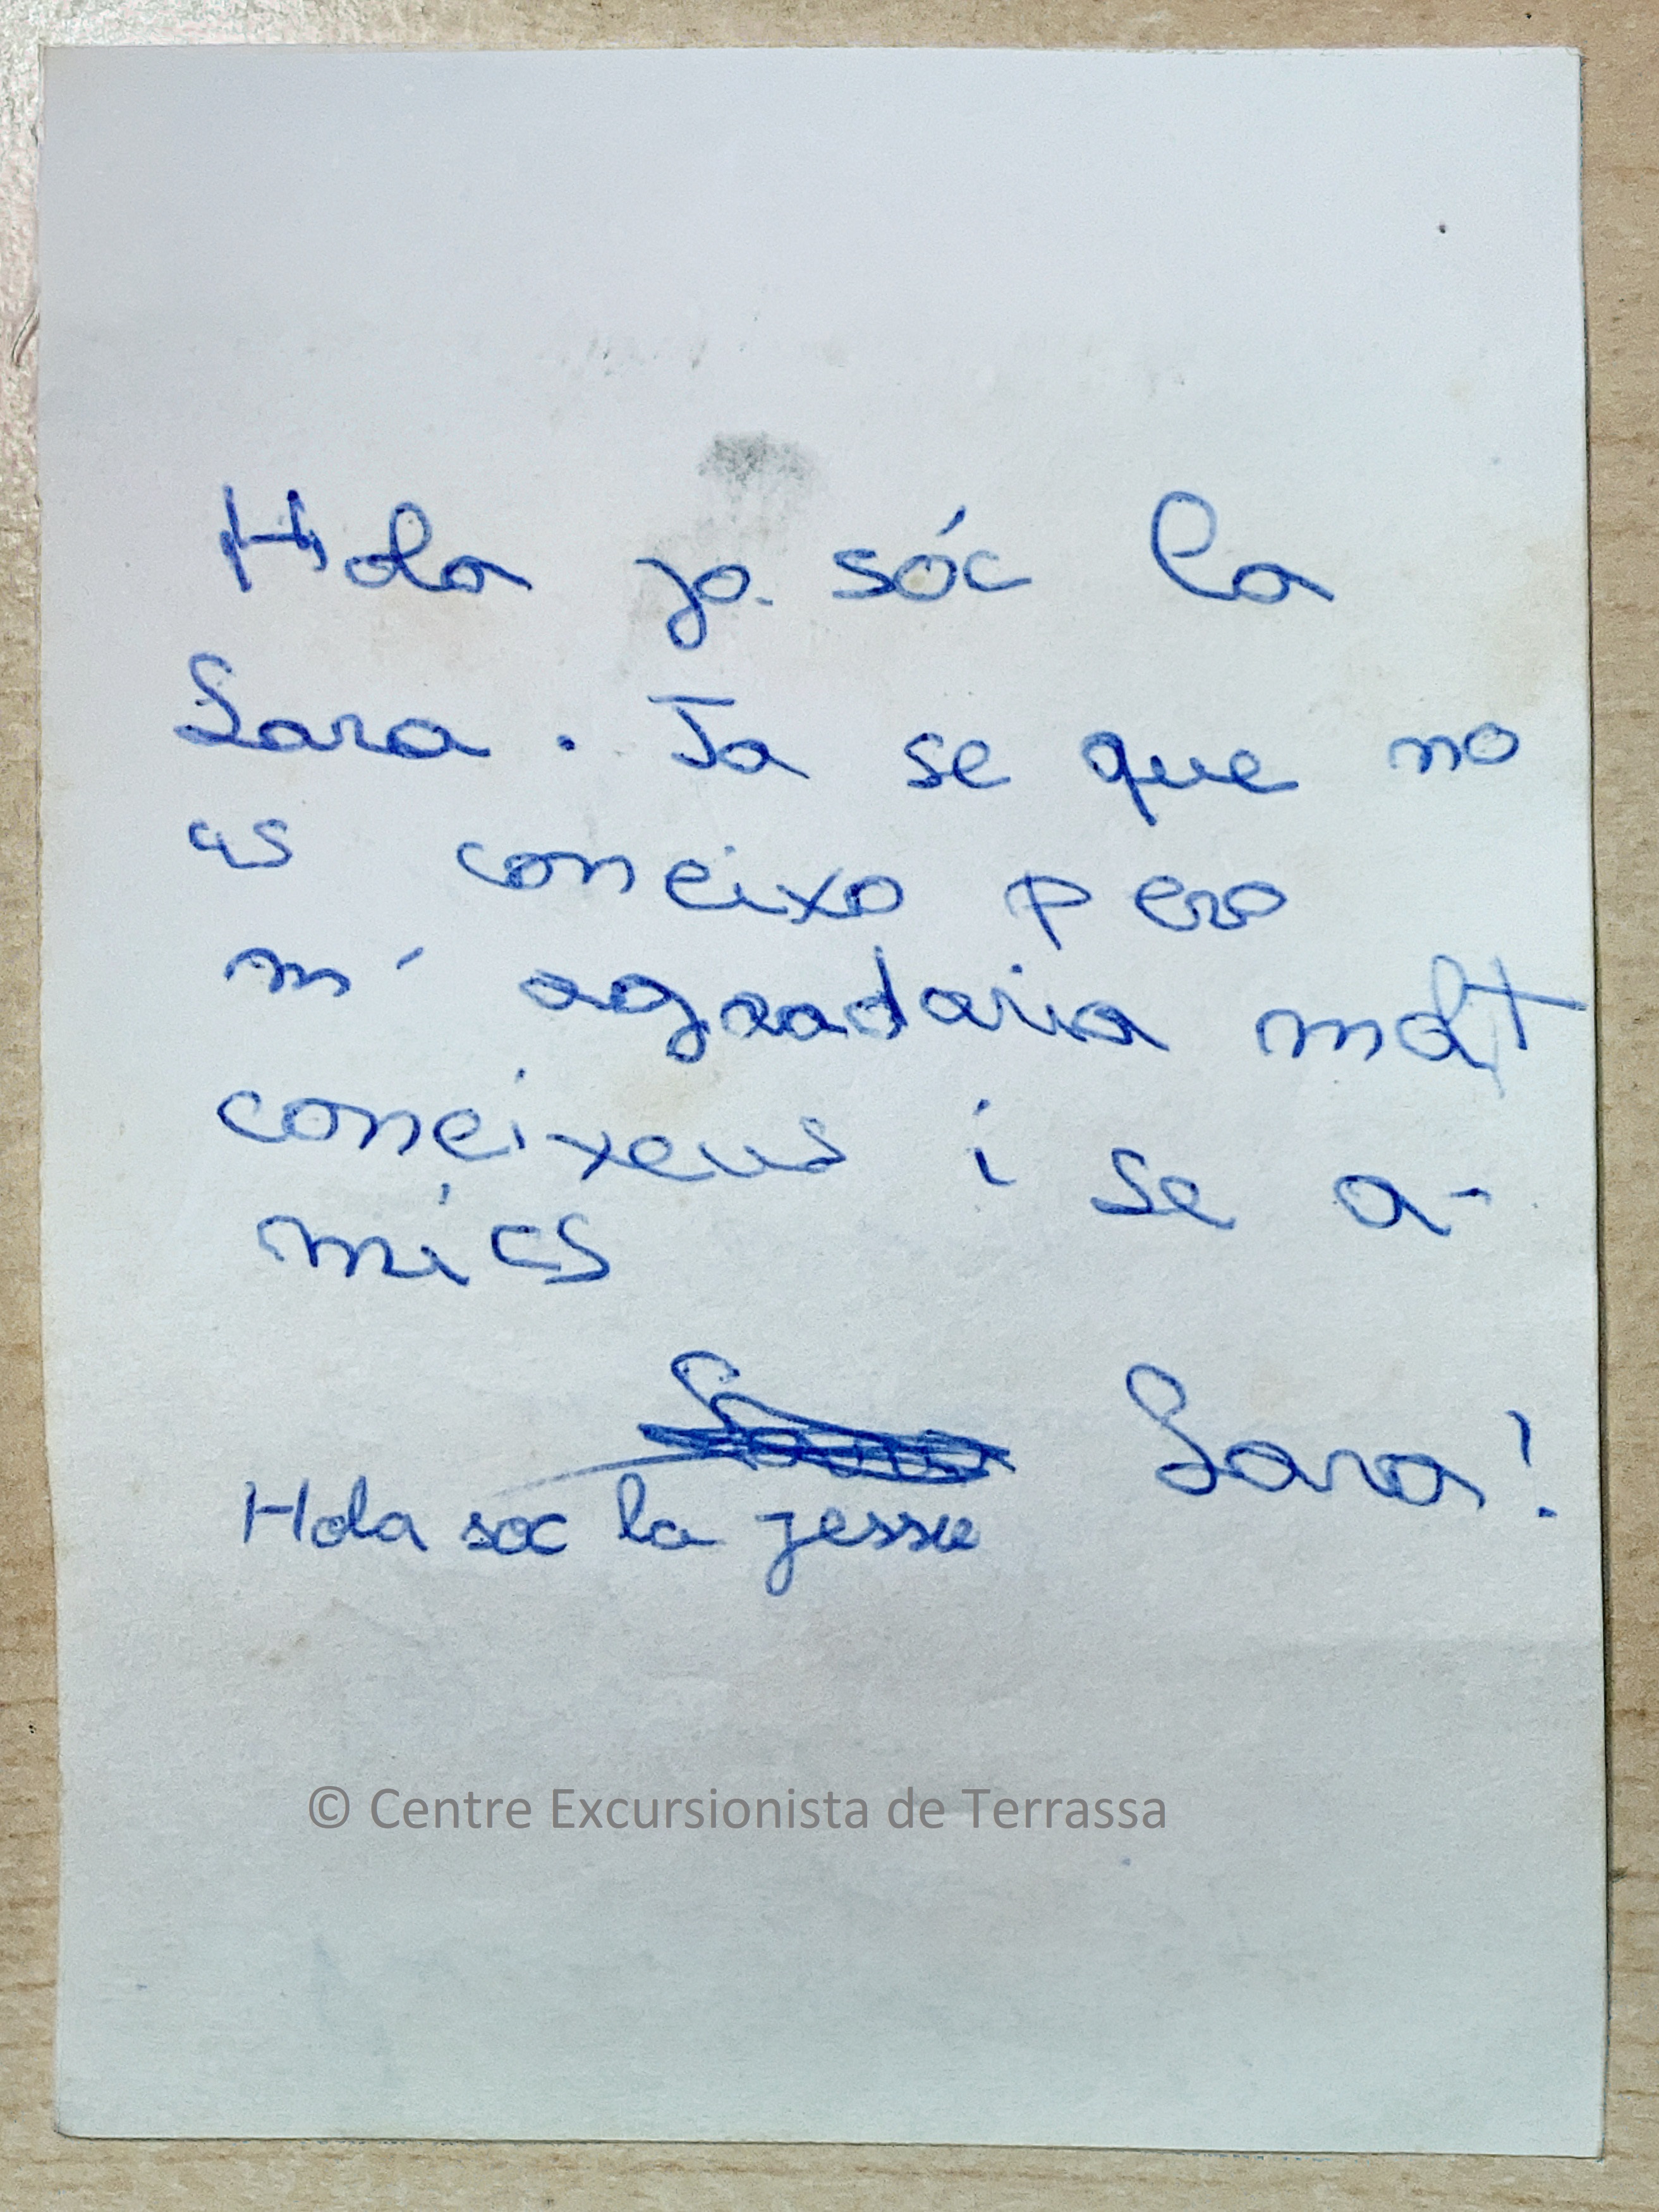 Hola jo sóc la
Sara. Ja se que no
us coneixo pero
m' agradaria molt
coneixeus i se a-
mics
Sara!
Hola soc la jessie
© Centre Excursionista de Terrassa